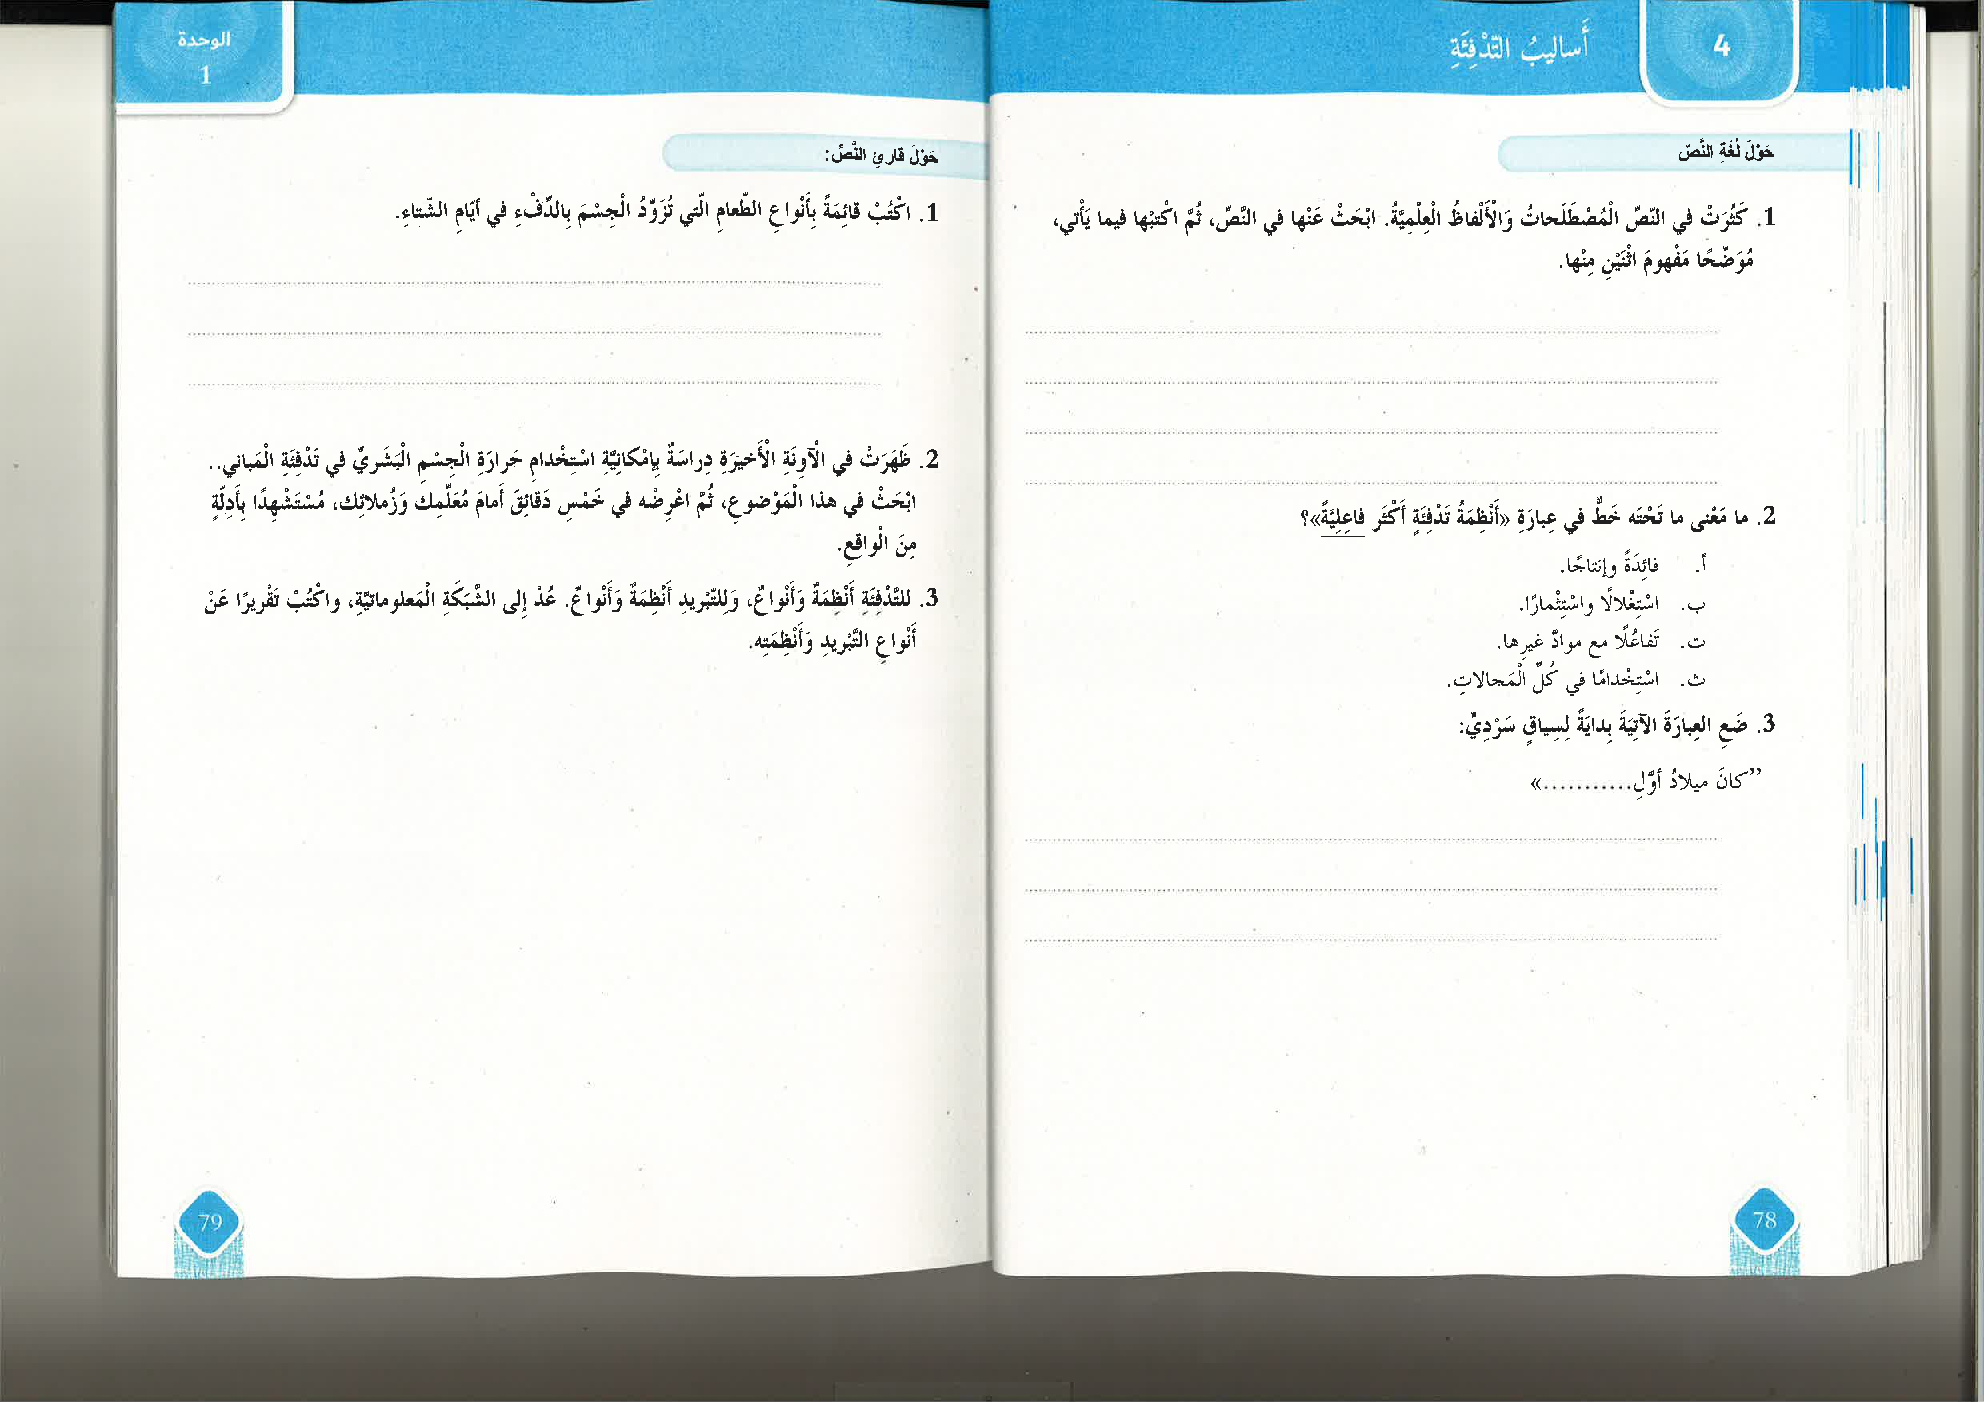 4
أَساليبُ التَّدْفِئَةِ
حَوْلَ لُغَةِ النَّصّ
1. كَثُرَتْ في النّصِّ الْمُصْطَلَحاتُ وَالْأَلْفاظُ الْعِلْمِيَّةُ. ابْحَثْ عَنْها في النَّصِّ، ثُمَّ اكْتبْها فيما يَأْتي،
مُوَضِّحًا مَفْهومَ اثْنَيْنِ مِنْها.
2. ما مَعْنى ما تَحْتَه خَطٌّ في عِبارَةِ «أَنْظِمَةُ تَدْفِئَةٍ أَكْثَر فاعِلِيَّةً»؟
أ. فائِدَةً وإنتاجًا.
ب. اسْتِغْلالًا واسْتِثْمارًا.
ت. تَفاعُلًا مع موادَّ غيرِها.
ث. اسْتِخْدامًا في كُلِّ الْمَجالاتِ.
3. ضَعِ العِبارَةَ الآتِيَةَ بِدايَةً لِسِياقٍ سَرْدِيٍّ:
”كانَ ميلادُ أوَّلِ...........»
78
الوحدة
1
حَوْلَ قارِئِ النَّصِّ:
1. اكْتُبْ قائِمَةً بِأَنْواعِ الطّعامِ الّتي تُزَوِّدُ الْجِسْمَ بِالدِّفْءِ في أيّامِ الشّتاءِ.
2. ظَهَرَتْ في الْآوِنَةِ الْأَخيرَةِ دِراسَةٌ بِإِمْكانِيَّةِ اسْتِخْدامِ حَرارَةِ الْجِسْمِ الْبَشَريِّ في تَدْفِئَةِ الْمَباني..
ابْحَثْ في هذا الْمَوْضوعِ، ثُمَّ اعْرِضْه في خَمْسِ دَقائِقَ أَمامَ مُعَلِّمِكَ وَزُملائِك، مُسْتَشْهِدًا بِأَدِلَّةٍ
مِنَ الْواقِعِ.
3. للتَّدْفِئَةِ أَنْظِمَةٌ وَأَنْواعٌ، وَلِلتَّبْريدِ أَنْظِمَةٌ وَأَنْواعٌ. عُدْ إِلى الشَّبَكَةِ الْمَعلوماتيّةِ، واكْتُبْ تَقْريرًا عَنْ
أَنْواعِ التَّبْريدِ وَأَنْظِمَتِه.
79